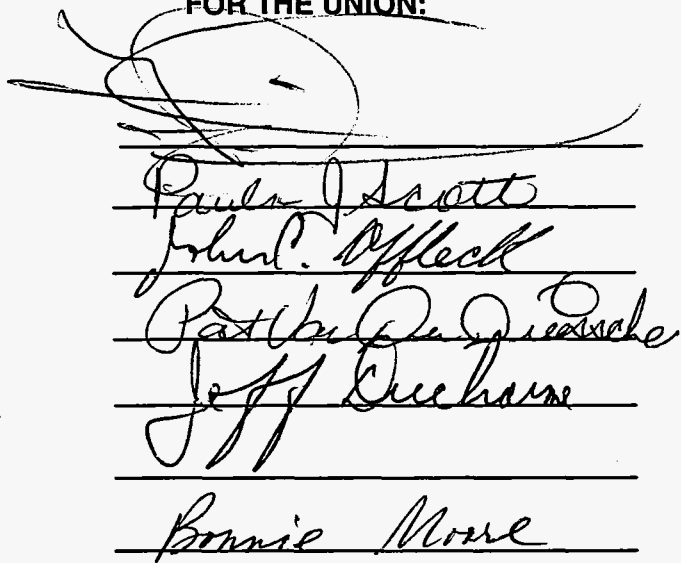 FOR THE UNION:
Paula J Scott
John C. Affleck
Pat Van De
Jeff Ducharme
Bonnie Moore